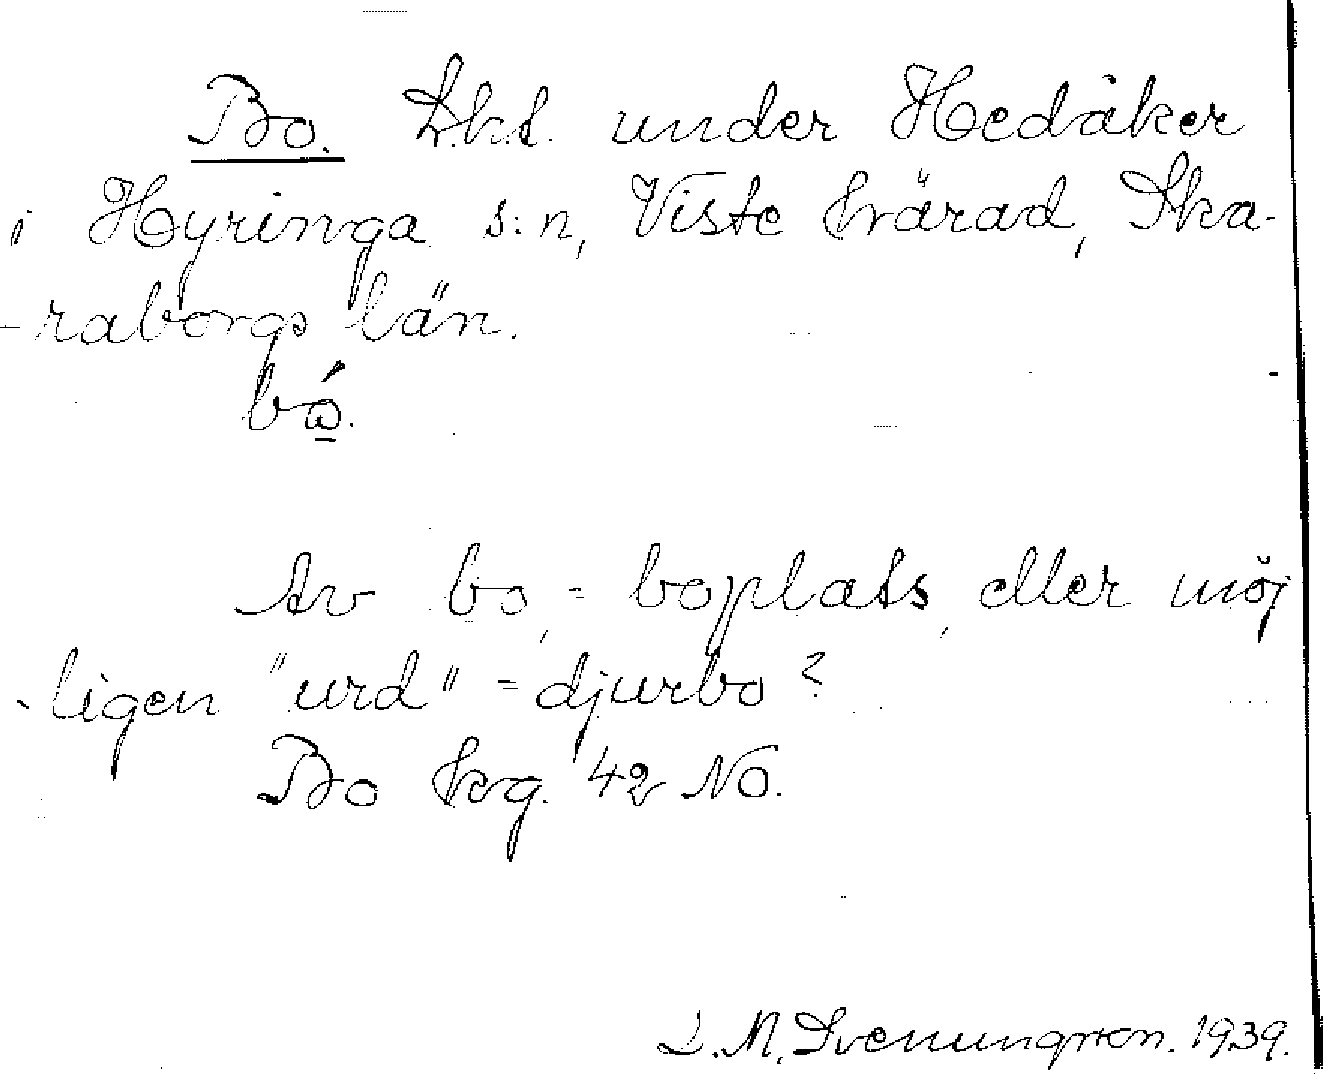 Bo. L.h.t. under Hedåker
i Hyringa s:n, Viste härad, Ska-
-raborgs län.
bó.
Av bo, = boplats, eller möj
-ligen "urd" = djurbo?
Bo hrg. 42 NO.
D. M. Svenungsson. 1939.